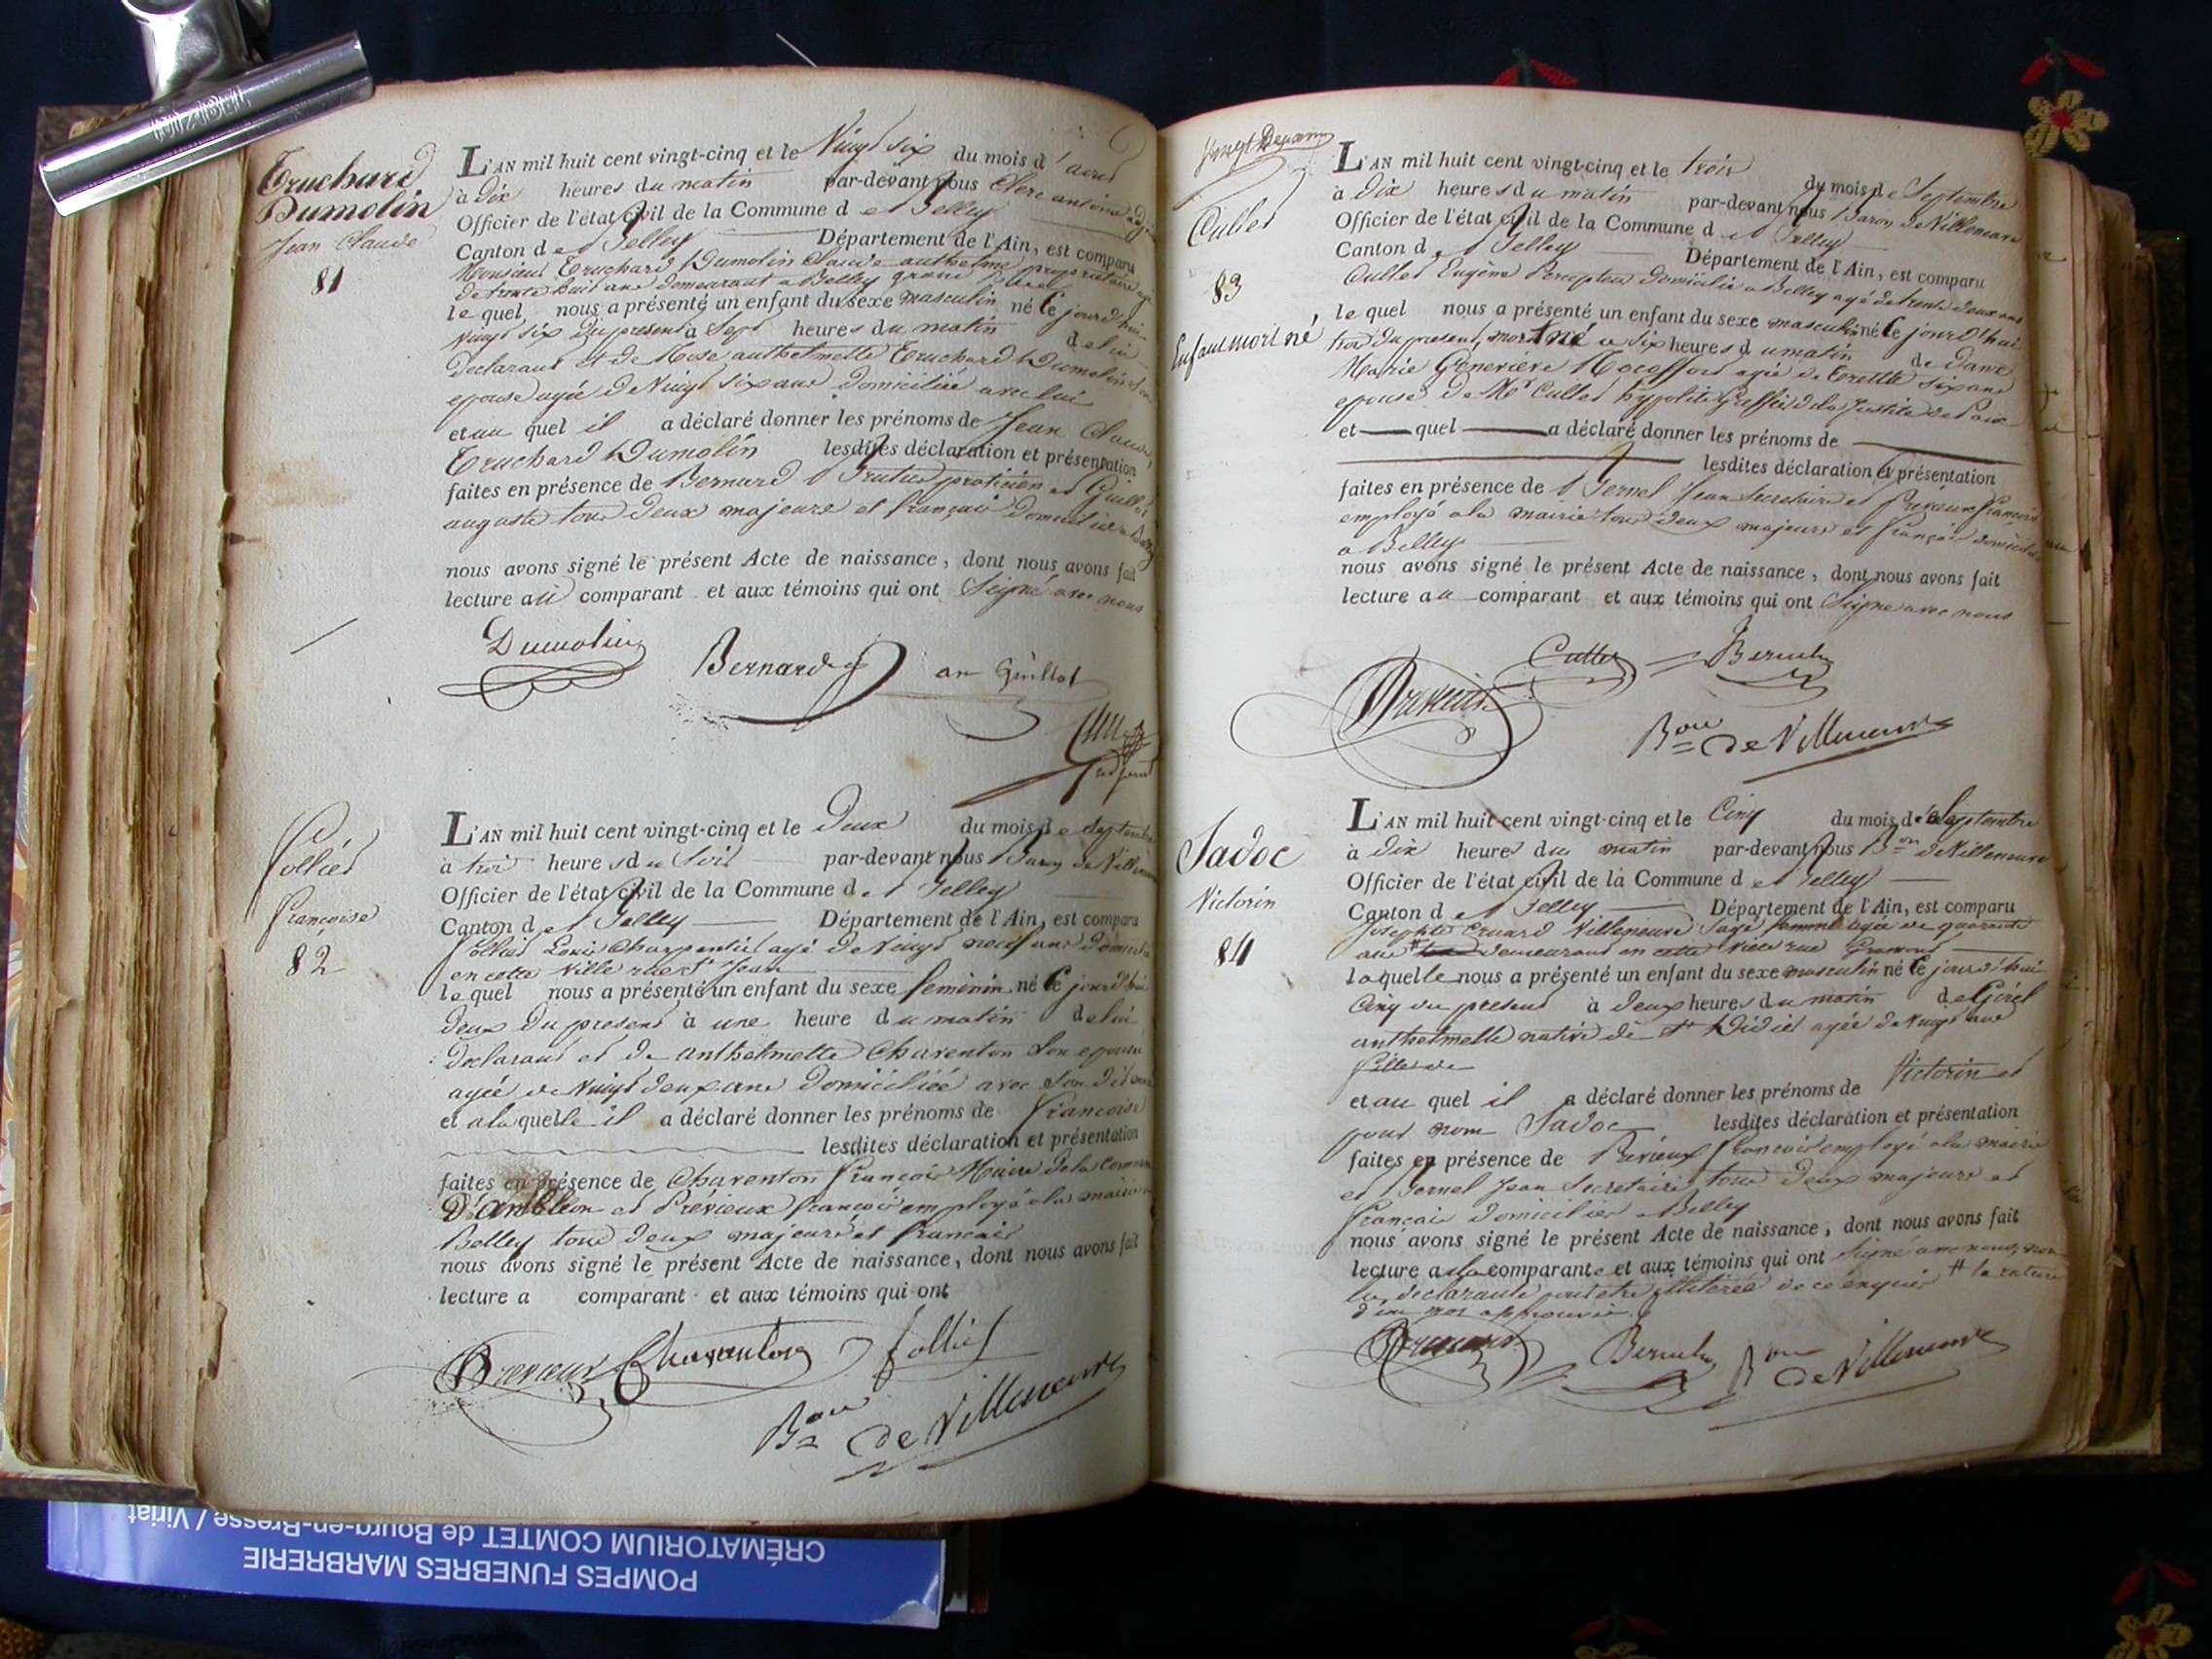 Truchard
Dumolin
Jean Claude
81
L'AN mil huit cent vingt-cinq et le Vingt six du mois d'aout
à Dix heures du matin par-devant nous Clerc antoine
Officier de l'état civil de la Commune de Belley
Canton de Belley Département de l'Ain, est comparu
Monsieur Truchard Dumolin Claude anthelme propriétaire
de trente huit ans demeurant a Belley grande rue
lequel nous a présenté un enfant du sexe masculin né Cejourd'hui
Vingt six du present à Sept heures du matin de lui
declarant et de Rose anthelmette Truchard Dumolin son
epouse agée de Vingt six ans domiciliée avec lui
et au quel il a déclaré donner les prénoms de Jean Claude
Truchard Dumolin lesdites déclaration et présentation
faites en présence de Bernard praticien et Guillot
auguste tous deux majeurs et français domiciliés a Belley
nous avons signé le présent Acte de naissance, dont nous avons fait
lecture au comparant et aux témoins qui ont Signé avec nous
Dumolin
Bernard
an Guillot
adjoint
Follies
françoise
82
L'AN mil huit cent vingt-cinq et le Deux du mois de Septembre
à trois heures du Soir par-devant nous Baron de Villeneuve
Officier de l'état civil de la Commune de Belley
Canton de Belley Département de l'Ain, est comparu
Louis Charpentier agé de Vingt neuf ans
en cette Ville rue St Jean
lequel nous a présenté un enfant du sexe feminin né Cejourd'hui
deux du present à une heure du matin de lui
declarant et de anthelmette Charenton Son epouse
agée de Vingt deux ans domiciliée avec Son dit mari
et a la quelle il a déclaré donner les prénoms de françoise
lesdites déclaration et présentation
faites en présence de Charenton françois Maire de la Commune
D'ambleon et Prévieux françois employé a la mairie
Belley tous deux majeurs et francais
nous avons signé le présent Acte de naissance, dont nous avons fait
lecture a comparant et aux témoins qui ont
Previeux Charenton
Bon de Villeneuve
Cullet
83
Enfant mort né
L'AN mil huit cent vingt-cinq et le trois du mois de Septembre
à Dix heures du matin par-devant nous Baron de Villeneuve
Officier de l'état civil de la Commune de Belley
Canton de Belley Département de l'Ain, est comparu
Cullet Eugène Percepteur domicilié a Belley agé de trente deux ans
lequel nous a présenté un enfant du sexe masculin né Cejourd'hui
trois du present, mort né a Six heures du matin de dame
Marie Geneviève agée de trente six ans
epouse de Mr Cullet hypolite Greffier de la Justice de Paix
et quel a déclaré donner les prénoms de
lesdites déclaration et présentation
faites en présence de Jean Secretaire et Prévieux françois
employé a la mairie tous deux majeurs et français domiciliés
a Belley
nous avons signé le présent Acte de naissance, dont nous avons fait
lecture au comparant et aux témoins qui ont Signé avec nous
Cullet
Previeux
Bon de Villeneuve
Sadoc
Victorin
84
L'AN mil huit cent vingt-cinq et le Cinq du mois de Septembre
à Dix heures du matin par-devant nous Bon de Villeneuve
Officier de l'état civil de la Commune de Belley
Canton de Belley Département de l'Ain, est comparu
Villeneuve Sage femme agée de quarante
ans demeurant en cette Ville rue
laquelle nous a présenté un enfant du sexe masculin né Cejourd'hui
Cinq du present à deux heures du matin de Girel
anthelmette native de St Didier agée de Vingt ans
fille de
et au quel il a déclaré donner les prénoms de Victorin et
pour nom Sadoc lesdites déclaration et présentation
faites en présence de Prévieux françois employé a la mairie
et Jean Secretaire tous deux majeurs et
francais domiciliés a Belley
nous avons signé le présent Acte de naissance, dont nous avons fait
lecture a la comparante et aux témoins qui ont Signé avec nous, non
la declarante pour etre illitérée de ce enquis # la rature
d'un mot approuvée
Bon de Villeneuve
CRÉMATORIUM COMTET de Bourg-en-Bresse / Viriat
POMPES FUNEBRES MARBRERIE